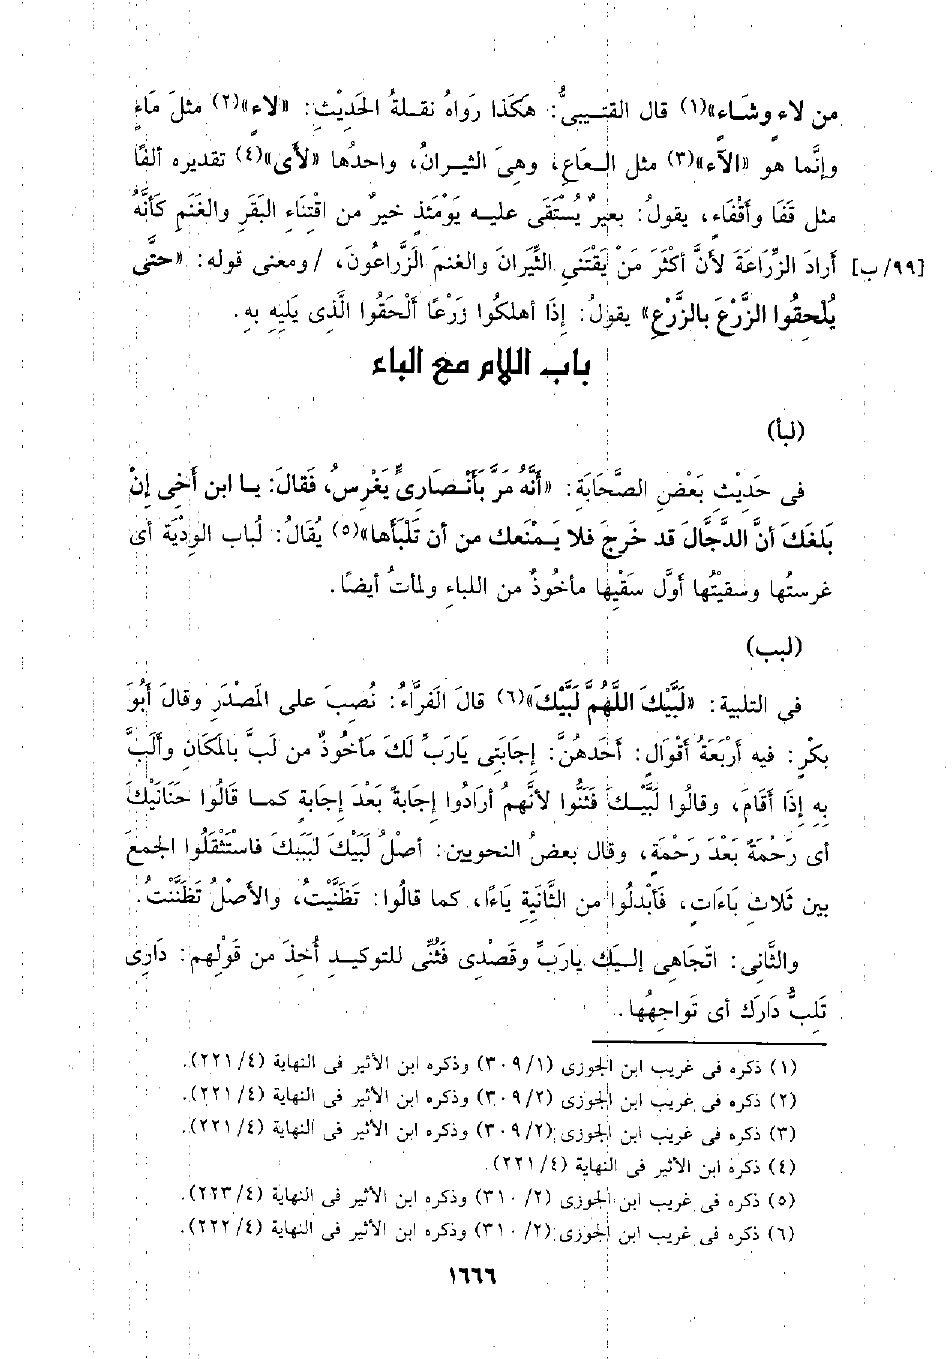 من لاءٍ وشَاءٍ»(١) قال القتـيبىُّ: هَكَذا رَواهُ نقـلة الحَديْثِ: «لاءٍ»(٢) مثلَ مَاءٍ
وإنَّما هو «الآء»(٣) مثل الـعَاعِ، وهِىَ الثـيرانُ، واحدُها «لأَى»(٤) تقديره ألفًا
مثل قَفَا وأقْفَاء، يقولُ: بعيرٌ يُسْتَقَى عليـه يَوْمَئذٍ خيرٌ من اقْتِنَاءِ البَقَرِ والغَنَمِ كَأنَّهُ
[٩٩/ب] أرادَ الزِّرَاعَةَ لأَنَّ أكثَرَ مَنْ يَقْتَنى الثِّيَرانَ والغنمَ الزَّراعُونَ، /ومعنى قوله: «حتَّى
يُلْحِقُوا الزَّرْعَ بالزَّرْعِ» يقولُ: إذَا أهلكُوا زَرْعًا ألْحَقُوا الَّذِى يَلِيهِ بِهِ.
باب اللام مع الباء
(لبأ)
فى حَدِيْثِ بَعْضِ الصَّحَابَةِ: «أَنَّهُ مَرَّ بَأَنْـصَارِىٍّ يَغْرِسُ، فَقَالَ: يـا ابن أَخِى إنْ
بَلغَكَ أنَّ الدَّجَّالَ قد خَرجَ فلا يَـمْنَعك من أن تَلْبَأَها»(٥) يُقَالُ: لُباب الوِدْيَة أى
غرستُها وسقيْتُها أوَّل سَقْيِها مأخُوذٌ من اللباءِ ولمأتُ أيضًا.
(لبب)
فى التلبية: «لَبَّيْكَ اللَّهُمَّ لَبَّيْكَ»(٦) قالَ الفَرَّاءُ: نُصِبَ على المَصْدَرِ وقالَ أبُو
بكْرٍ: فيه أرْبَعَةُ أقْوَالٍ: أحَدهُنَّ: إجَابَتِى يَارَبِّ لَكَ مَأخُوذٌ من لَبَّ بالمَكَانِ وألَبَّ
بِهِ إذَا أقَامَ، وقالُوا لَبَّيْـكَ فَثَنُّوا لأنَّهمُ أرَادُوا إجَابةً بَعْدَ إجَابةٍ كمـا قَالُوا حَنَانَيْكَ
أى رَحْمَةً بَعْدَ رَحْمَةٍ، وقال بعضُ النحويين: أصْلُ لَبَيْكَ لَبَبَكَ فاسْتَثْقَلُوا الجَمعَ
بين ثَلاثِ بَاءَاتٍ، فَأبْدلُوا من الثَّانَيةِ يَاءًا، كما قالُوا: تَظَنَّيْتُ، والأصْلُ تَظَنَّنْتُ.
والثَّانى: اتّجاهِى إلـيَك يارَبِّ وقَصْدِى فَثُنِّى للتوكيـدِ أُخِذَ من قَوْلِهم: دَارِى
تَلِبُّ دَارَك أى تَواجِهُها.
(١) ذكره فى غريب ابن الجوزى (٣٠٩/١) وذكره ابن الأثير فى النهاية (٢٢١/٤).
(٢) ذكره فى غريب ابن الجوزى (٣٠٩/٢) وذكره ابن الأثير فى النهاية (٢٢١/٤).
(٣) ذكره فى غريب ابن الجوزى (٣٠٩/٢) وذكره ابن الأثير فى النهاية (٢٢١/٤).
(٤) ذكره ابن الأثير فى النهاية (٢٢١/٤).
(٥) ذكره فى غريب ابن الجوزى (٣١٠/٢) وذكره ابن الأثير فى النهاية (٢٢٣/٤).
(٦) ذكره فى غريب ابن الجوزى (٣١٠/٢) وذكره ابن الأثير فى النهاية (٢٢٢/٤).
١٦٦٦